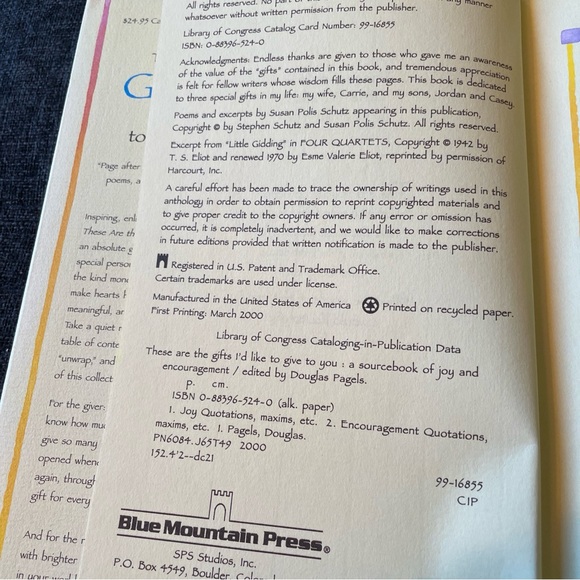 $24.95
G
to
"Page after
poems, a
Inspiring, enl
These Are th
an absolute g
special perso
the kind mom
make hearts f
meaningful, ar
Take a quiet r
table of conte
"unwrap," and
of this collect
For the giver
know how muc
give so many
opened when
again, through
gift for every
And for the r
with brighter
All rights reserved. No part manner
whatsoever without written permission from the publisher.
Library of Congress Catalog Card Number: 99-16855
ISBN: 0-88396-524-0
Acknowledgments: Endless thanks are given to those who gave me an awareness
of the value of the "gifts" contained in this book, and tremendous appreciation
is felt for fellow writers whose wisdom fills these pages. This book is dedicated
to three special gifts in my life: my wife, Carrie, and my sons, Jordan and Casey.
Poems and excerpts by Susan Polis Schutz appearing in this publication,
Copyright © by Stephen Schutz and Susan Polis Schutz. All rights reserved.
Excerpt from "Little Gidding" in FOUR QUARTETS, Copyright © 1942 by
T. S. Eliot and renewed 1970 by Esme Valerie Eliot, reprinted by permission of
Harcourt, Inc.
A careful effort has been made to trace the ownership of writings used in this
anthology in order to obtain permission to reprint copyrighted materials and
to give proper credit to the copyright owners. If any error or omission has
occurred, it is completely inadvertent, and we would like to make corrections
in future editions provided that written notification is made to the publisher.
Registered in U.S. Patent and Trademark Office.
Certain trademarks are used under license.
Manufactured in the United States of America Printed on recycled paper.
First Printing: March 2000
Library of Congress Cataloging-in-Publication Data
These are the gifts I'd like to give to you : a sourcebook of joy and
encouragement / edited by Douglas Pagels.
p. cm.
ISBN 0-88396-524-0 (alk. paper)
1. Joy Quotations, maxims, etc. 2. Encouragement Quotations,
maxims, etc. I. Pagels, Douglas.
PN6084.J65T49 2000
152.4'2--dc21
99-16855
CIP
Blue Mountain Press®
SPS Studios, Inc.
P.O. Box 4549, Boulder,